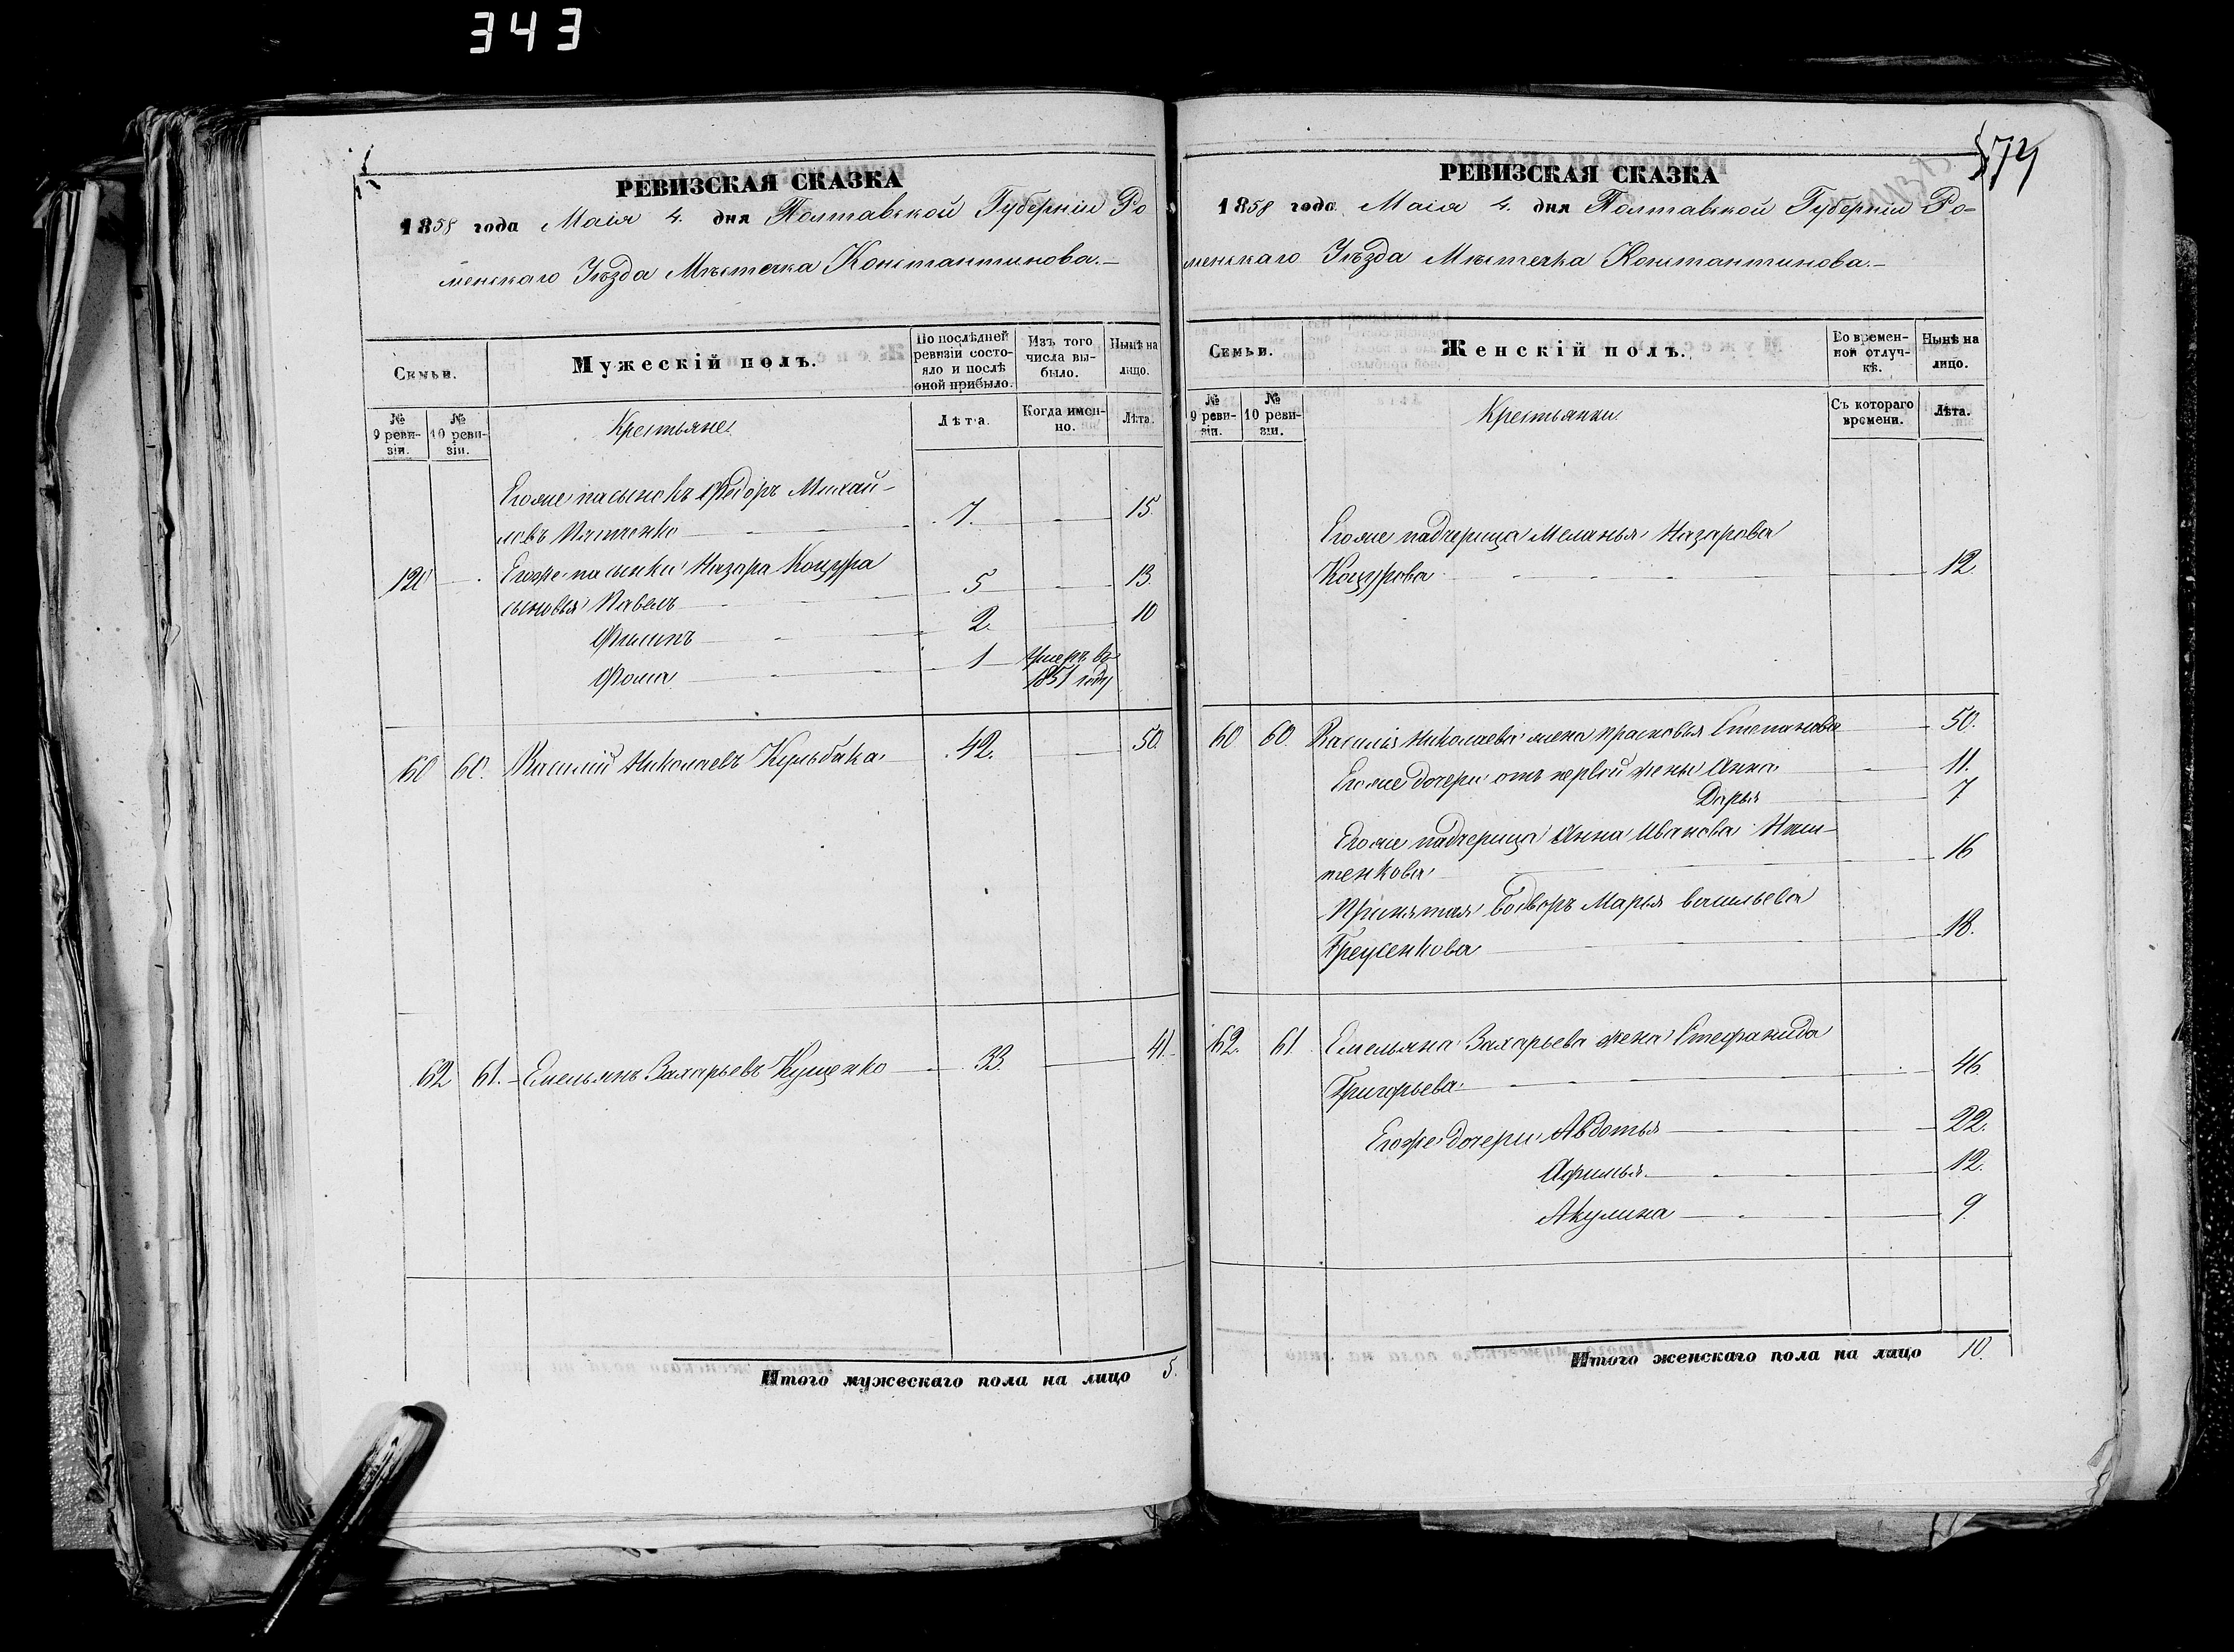 343
РЕВИЗСКАЯ СКАЗКА
1858 года Маія 4. дня Полтавской Губерніи Ро
менскаго Уѣзда Мѣстечка Константинова.—
Семьи.
Мужескій полъ.
По послѣдней ревизіи состояло и послѣ оной прибыло.
Изъ того числа выбыло.
Нынѣ на лицо.
№ 9 ревизіи.
№ 10 ревизіи.
Крестьяне
Лѣта.
Когда именно.
Лѣта.
Егоже пасынокъ Федоръ Михай-
ловъ 7. 15.
Егоже пасынки Назара Коцура
сыновья Павелъ 5 13.
Филипъ 2. 10
Фома 1 умеръ въ
1851 году
60 60. Василій Николаевъ Кульбака 42. 50.
62 61. Емельянъ Захарьевъ Кущенко 33. 41.
Итого мужескаго пола на лицо 5.
РЕВИЗСКАЯ СКАЗКА
1858 года Маія 4. дня Полтавской Губерніи Ро-
менскаго Уѣзда Мѣстечка Константинова.—
Семьи.
Женскій полъ.
Во временной отлучкѣ.
Нынѣ на лицо.
№ 9 ревизіи.
№ 10 ревизіи.
Крестьянки
Съ котораго времени.
Лѣта.
Егоже падчерица Меланья Назарова
Коцурова 12.
60 60. Василія Николаева жена Прасковья Степанова 50.
Егоже дочери отъ первой жены Анна 11.
Дарья 7
Егоже падчерица Анна Иванова
16
Принятая во дворъ Марья Васильева
18.
62. 61. Емельяна Захарьева жена Стефанида
Григорьева 46.
Егоже дочери Авдотья 22.
Афимья 12.
Акулина 9.
Итого женскаго пола на лицо 10.